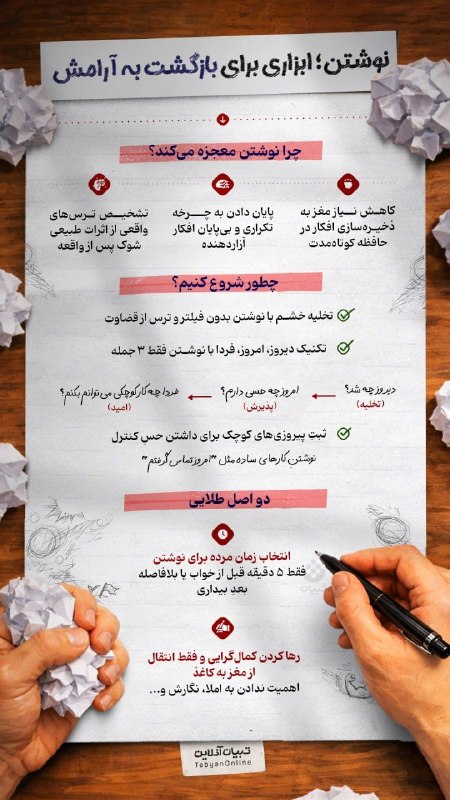 نوشتن؛ ابزاری برای بازگشت به آرامش
چرا نوشتن معجزه می‌کند؟
کاهش نیاز مغز به
ذخیره‌سازی افکار در
حافظه کوتاه‌مدت
پایان دادن به چرخه
تکراری و بی‌پایان افکار
آزاردهنده
تشخیص ترس‌های
واقعی از اثرات طبیعی
شوک پس از واقعه
چطور شروع کنیم؟
تخلیه خشم با نوشتن بدون فیلتر و ترس از قضاوت
تکنیک دیروز، امروز، فردا با نوشتن فقط ۳ جمله
دیروز چه شد؟
(تخلیه)
امروز چه حسی دارم؟
(پذیرش)
فردا چه کار کوچکی می‌توانم بکنم؟
(امید)
ثبت پیروزی‌های کوچک برای داشتن حس کنترل
نوشتن کارهای ساده مثل "امروز تماس گرفتم"
دو اصل طلایی
انتخاب زمان مرده برای نوشتن
فقط ۵ دقیقه قبل از خواب یا بلافاصله
بعد بیداری
رها کردن کمال‌گرایی و فقط انتقال
از مغز به کاغذ
اهمیت ندادن به املا، نگارش و...
تبیان آنلاین
TebyanOnline